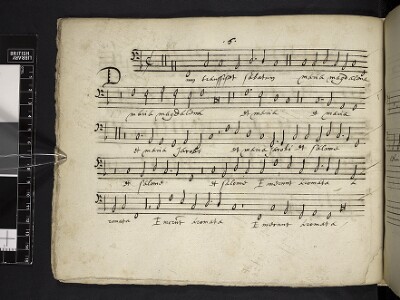 ·6·
D
um transisset sabatum maria magdalena
maria magdalena et maria et maria
et maria Jacobi et maria Jacobi et salome
et salome et salome Emerunt aromata a
romata Emerunt aromata Emerunt aromata